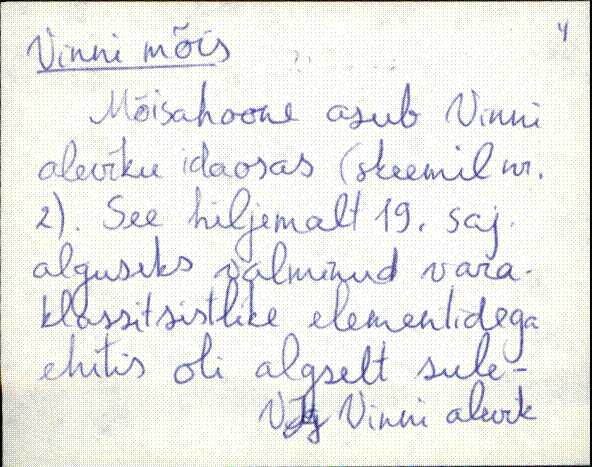 4
Vinni mõis
Mõisahoone asub Vinni
aleviku idaosas (skeemil nr.
2). See hiljemalt 19. saj.
alguseks valminud vara-
klassitsistlike elementidega
ehitis oli algselt sule-
Vinni alevik